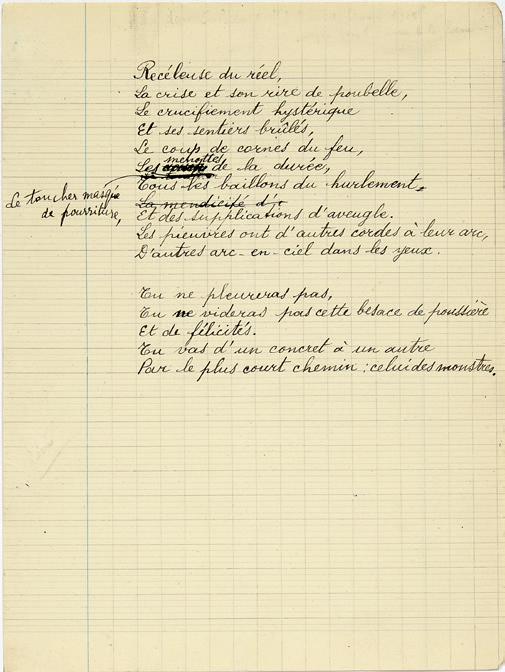 Recéleuse du réel,
La crise et son rire de poubelle,
Le crucifiement hystérique
Et ses sentiers brûlés,
Le coup de cornes du feu,
Les menottes de la durée,
Le toucher masqué
de pourriture,
Tous les baillons du hurlement.
La mendicité d'
Et des supplications d'aveugle.
Les pieuvres ont d'autres cordes à leur arc,
D'autres arc-en-ciel dans les yeux.
Tu ne pleureras pas,
Tu ne videras pas cette besace de poussière
Et de félicités.
Tu vas d'un concret à un autre
Par le plus court chemin : celui des monstres.